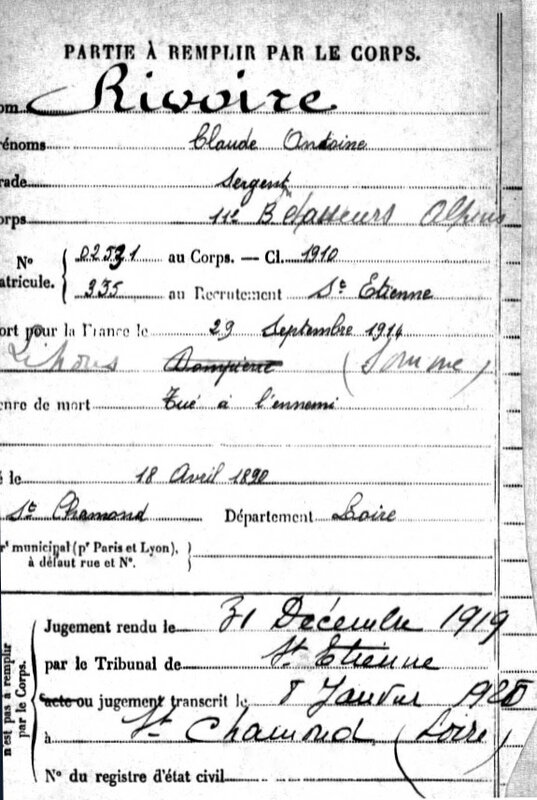 PARTIE À REMPLIR PAR LE CORPS.
om Rivoire
rénoms Claude Antoine
rade Sergent
orps 11e B Chasseurs Alpins
N° 02531 au Corps. — Cl. 1910
atricule. 335 au Recrutement St Etienne
ort pour la France le 29 Septembre 1914
Lihons Dompierre (Somme)
enre de mort Tué à l'ennemi
é le 18 Avril 1890
St Chamond Département Loire
rt municipal (pr Paris et Lyon),
à défaut rue et N°.
n'est pas à remplir
par le Corps.
Jugement rendu le 31 Décembre 1919
par le Tribunal de St Etienne
acte ou jugement transcrit le 8 Janvier 1920
à St Chamond (Loire)
N° du registre d'état civil